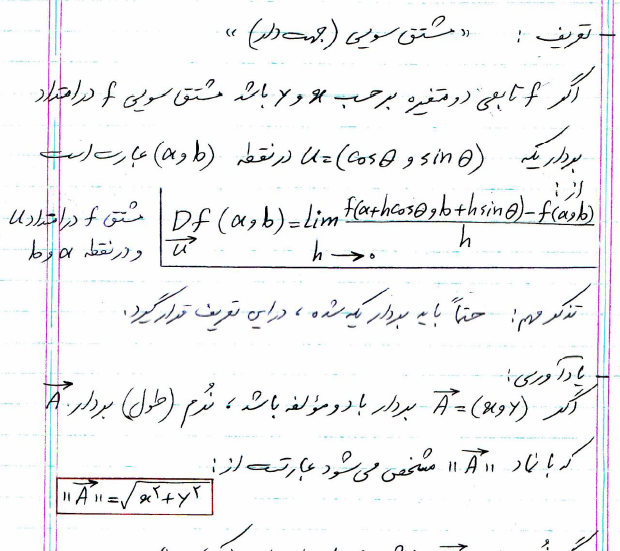 - تعریف : « مشتق سویی (جهت دار) »
اگر f تابعی دو متغیره بر حسب x و y باشد مشتق سویی f در امتداد
بردار یکه u=(cosθ و sinθ) در نقطه (a و b) عبارت است
از:
مشتق f در امتداد u
و در نقطه a و b
Df (a و b) = lim f(a+hcosθ و b+hsinθ) - f(a و b)
u h→۰ h
تذکر مهم: حتماً باید بردار یکه شده ، در این تعریف قرار گیرد.
- یادآوری:
اگر A = (x و y) بردار با دو مؤلفه باشد ، نُرم (طول) بردار A
که با نماد "A" مشخص می شود عبارتست از:
"A" = √x۲+y۲